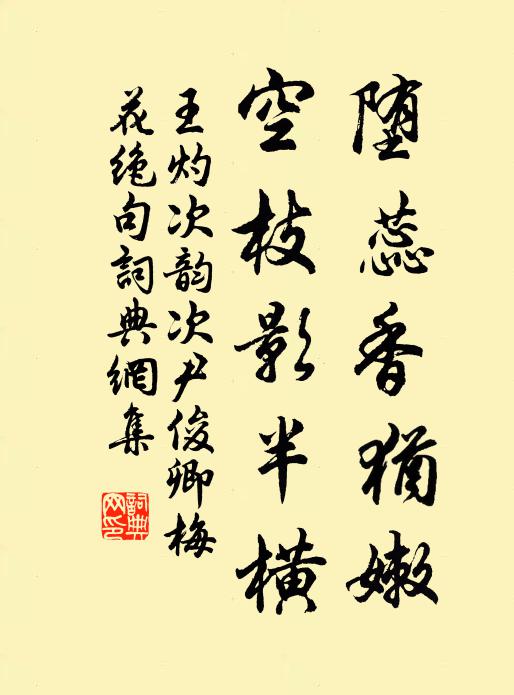 堕蕊香猶嫩
空枝影半横
王灼次韵次尹俊卿梅
花绝句詞典網集
詞典
网印